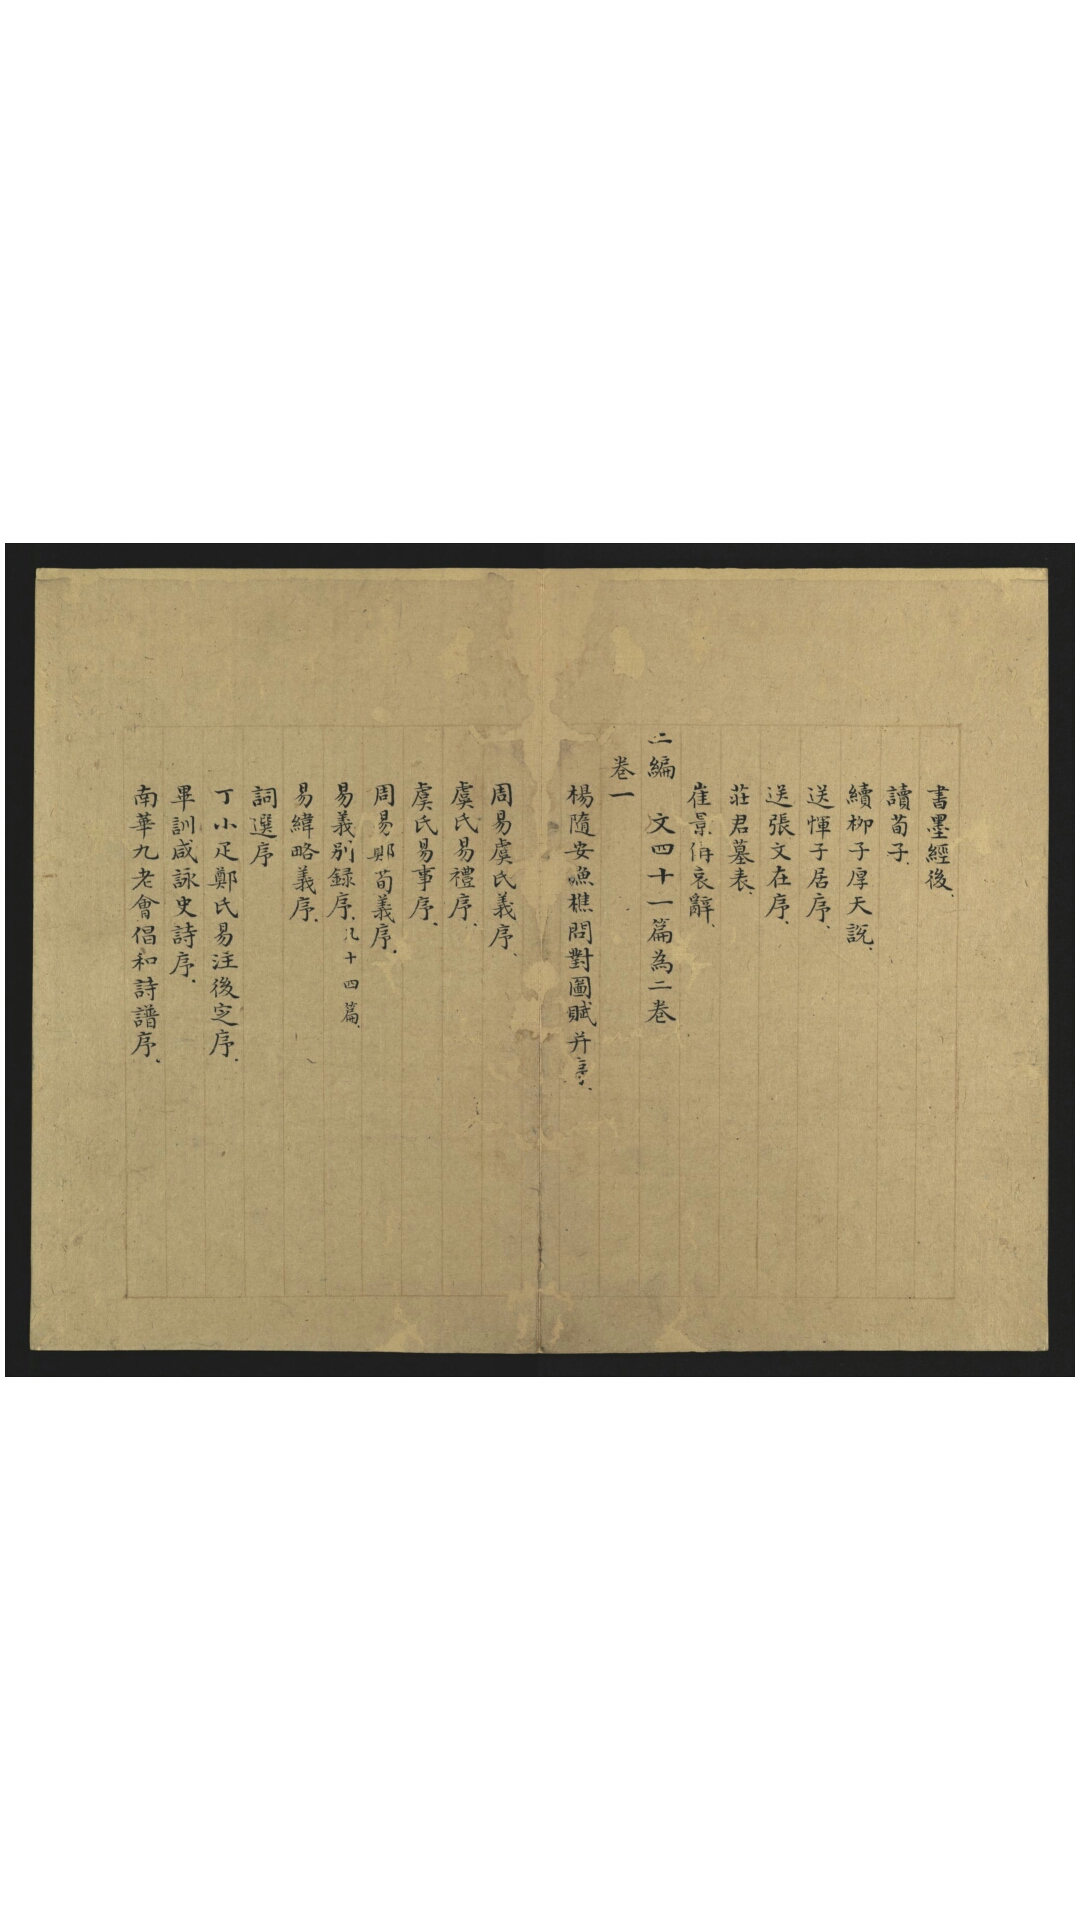 書墨經後
讀荀子
續柳子厚天說
送惲子居序
送張文在序
莊君墓表
崔景偁哀辭
二編　文四十一篇為二卷
卷一
楊隨安漁樵問對圖賦并序
周易虞氏義序
虞氏易禮序
虞氏易事序
周易鄭荀義序
易義別錄序凡十四篇
易緯略義序
詞選序
丁小疋鄭氏易注後定序
畢訓咸詠史詩序
南華九老會倡和詩譜序